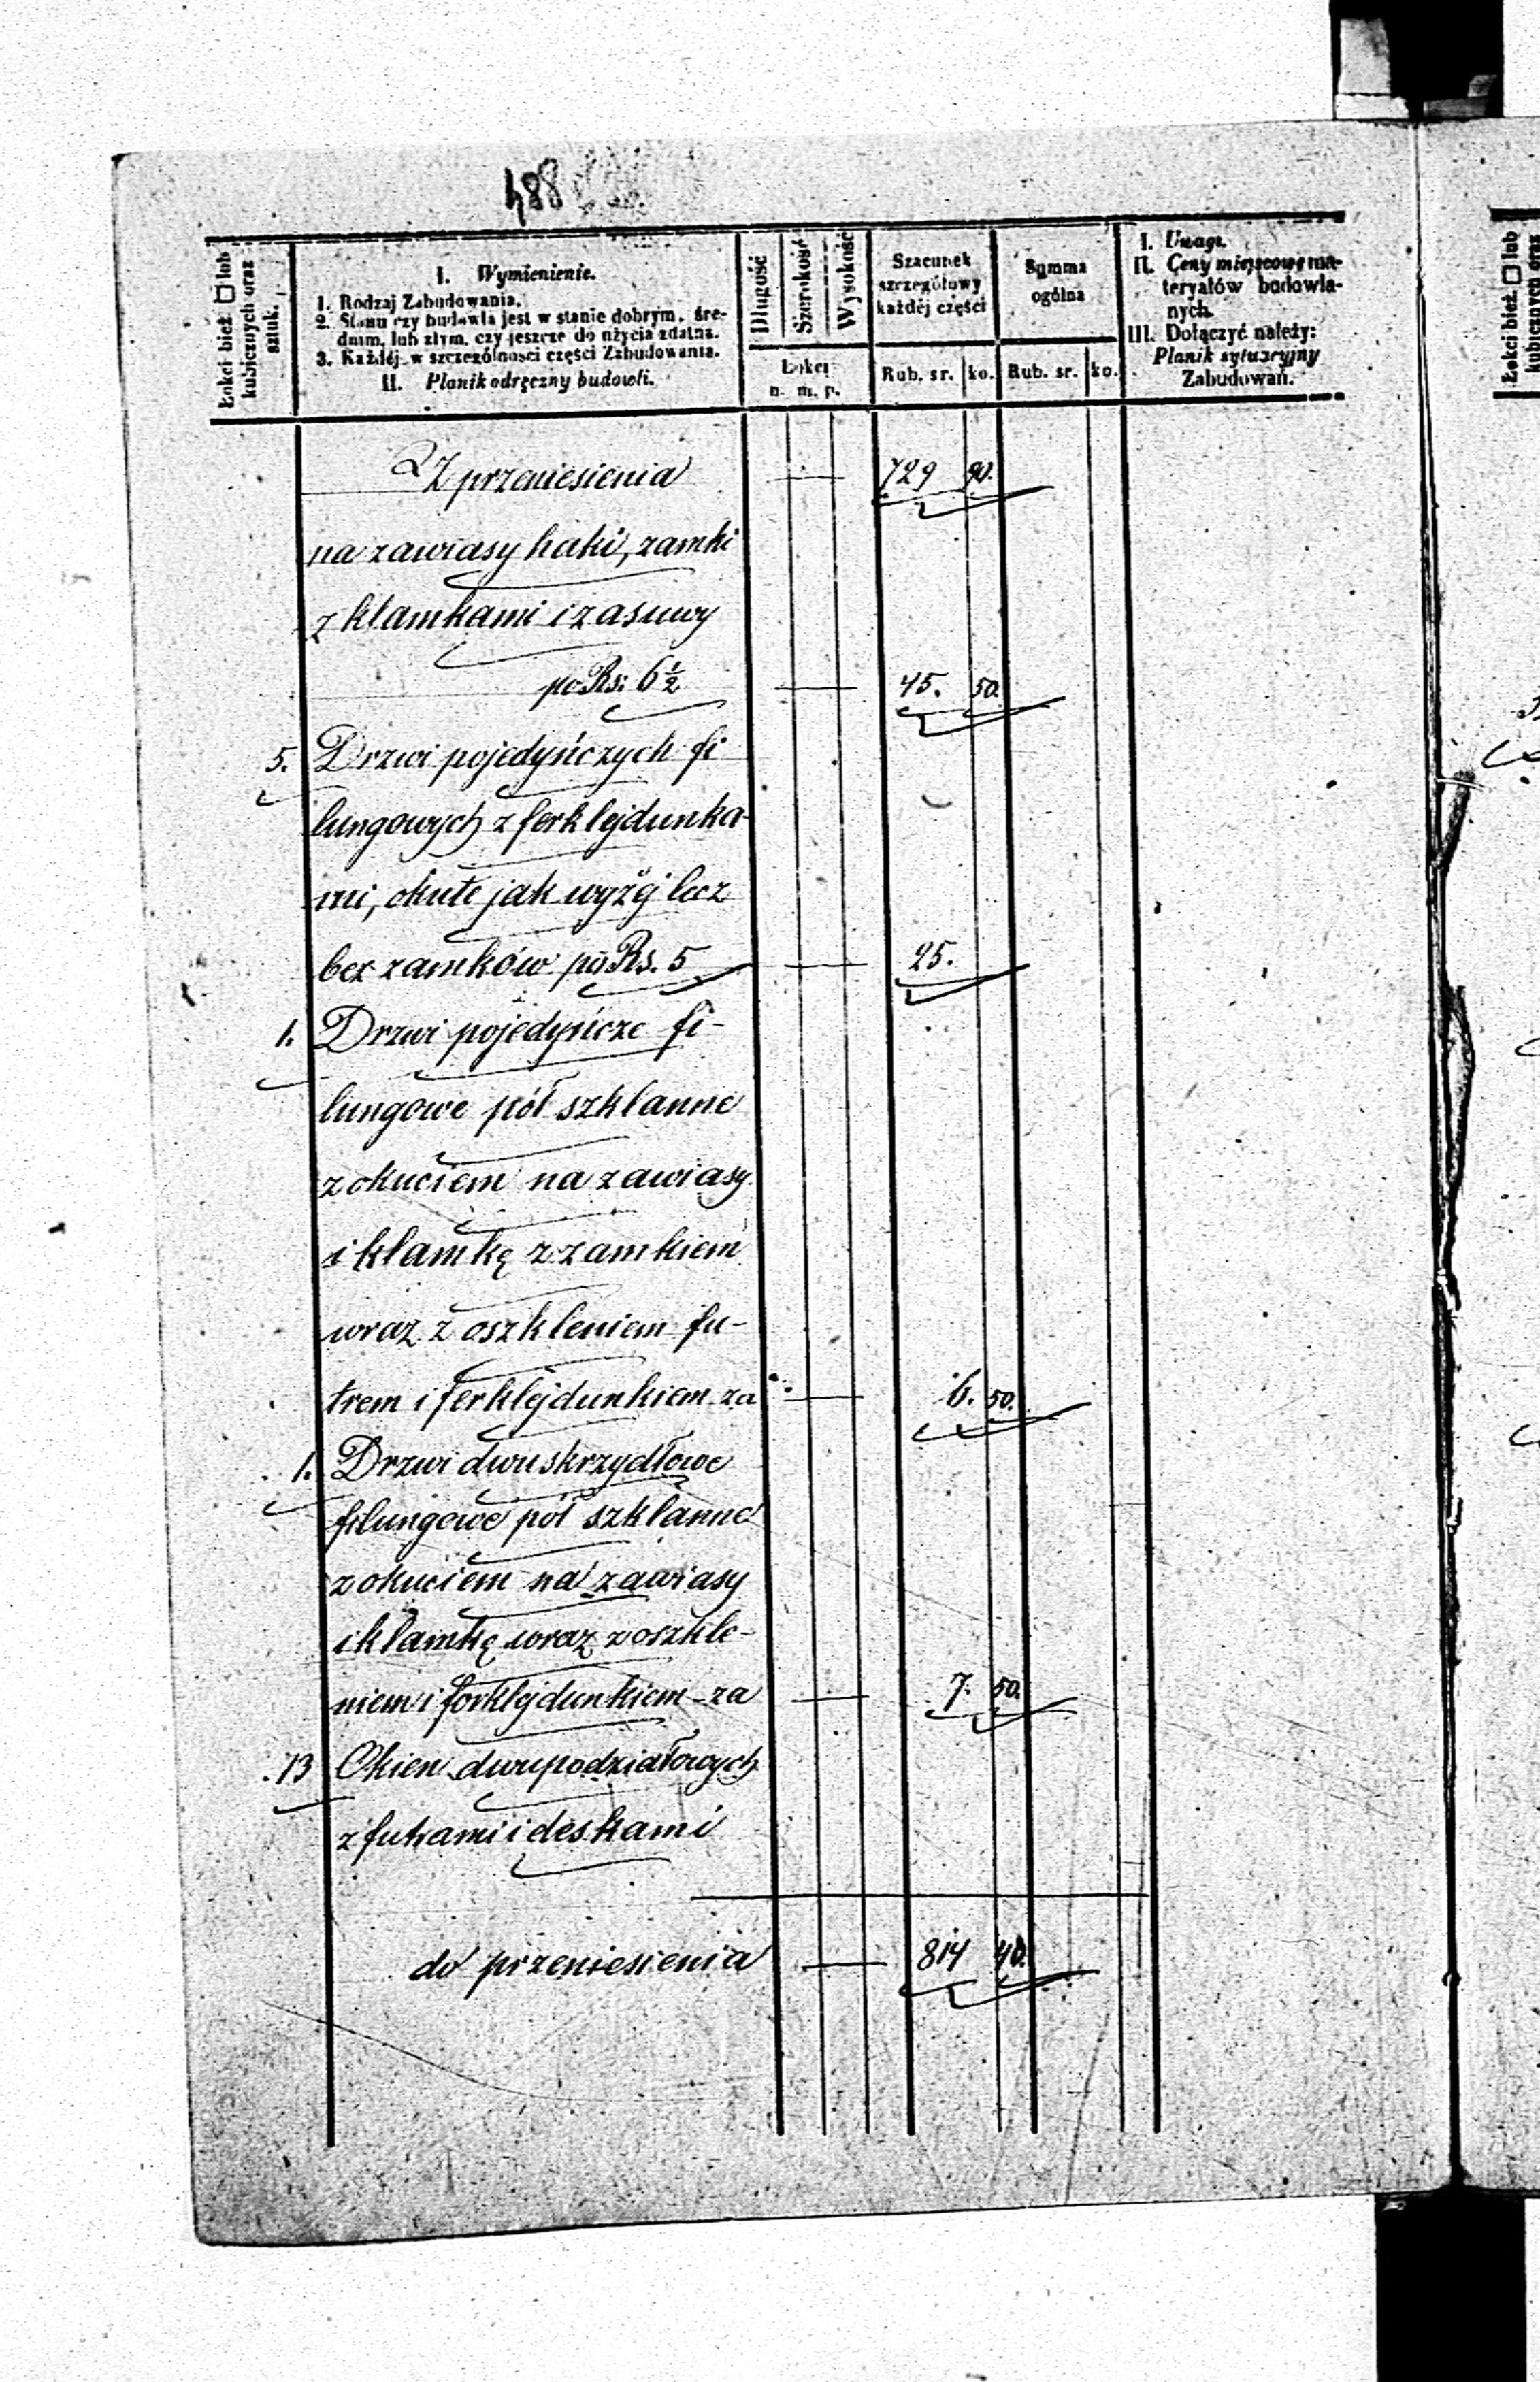 488
Łokci bież. □ lub kubicznych oraz sztuk.
I. Wymienienie.
1. Rodzaj Zabudowania.
2. Stanu czy budowla jest w stanie dobrym, śre-
dnim, lub złym, czy jeszcze do użycia zdatna.
3. Każdéj w szczególności części Zabudowania.
II. Planik odręczny budowli.
Długość
Szerokość
Wysokość
Łokci
n. m. p.
Szacunek
szczegółowy
każdéj części
Rub. sr. ko.
Summa
ogólna
Rub. sr. ko.
I. Uwagi.
II. Ceny miejscowe ma-
teryałów budowla-
nych.
III. Dołączyć należy:
Planik sytuacyjny
Zabudowań.
Z przeniesienia — 729 90.
na zawiasy haki, zamki
z klamkami i zasuwy
po Rs: 6½ — 45. 50.
5. Drzwi pojedyńczych fi
lungowych z ferklejdunka-
mi, okute jak wyżéj lecz
bez zamków po Rs. 5 — 25.
1. Drzwi pojedyńcze fi-
lungowe pół szklanne
z okuciem na zawiasy
i klamkę z zamkiem
wraz z oszkleniem fu-
trem i ferklejdunkiem za — 6. 50.
1. Drzwi dwuskrzydłowe
filungowe pół szklanne
z okuciem na zawiasy
i klamkę wraz z oszkle-
niem i forklejdunkiem - za — 7. 50.
13 Okien dwupodziałowych
z futrami i deskami
do przeniesienia — 814 40.